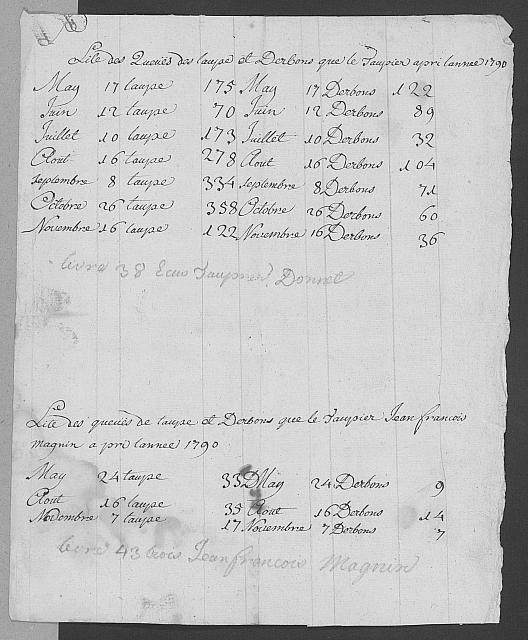 Lite des Queuës des taupe et Derbons que le Taupier apri lannee 1790
May 17 taupe 175 May 17 Derbons 122
Juin 12 taupe 70 Juin 12 Derbons 89
Juillet 10 taupe 173 Juillet 10 Derbons 32
Aout 16 taupe 278 Aout 16 Derbons 104
Septembre 8 taupe 334 Septembre 8 Derbons 71
Octobre 26 taupe 358 Octobre 26 Derbons 60
Novembre 16 taupe 122 Novembre 16 Derbons 36
livre 38 Ecus Taupier Donnet
Lite des queuës de taupe et Derbons que le Taupier Jean francois
Magnin a pri lannee 1790
May 24 taupe 33 May 24 Derbons 9
Aout 16 taupe 35 Aout 16 Derbons 14
Novembre 7 taupe 17 Novembre 7 Derbons 7
livre 43 Jean francois Magnin